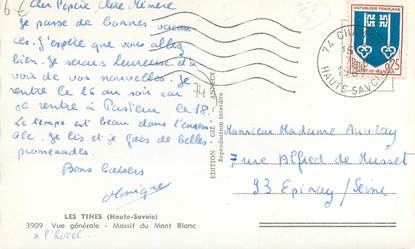 Cher Pépère, Chère Mémère
Je passe de bonnes vacan
ces. J'espère que vous allez
bien. Je serais heureuse d'a
voir de vos nouvelles. Je
rentre le 16 au soir car
je rentre à Pasteur le 18.
Le temps est beau dans l'ensem
ble. Je lis et je fais de belles
promenades.
Bons baisers
Monique
LES TINES (Haute-Savoie)
3909 Vue générale - Massif du Mont Blanc
x l'hôtel
EDITION GIE ANNECY
Reproduction Interdite
REPUBLIQUE FRANÇAISE
0,25
MONT-DE-MARSAN
74
HAUTE-SAVOIE
Monsieur Madame Auvray
7 rue Alfred de Musset
93 Epinay/Seine